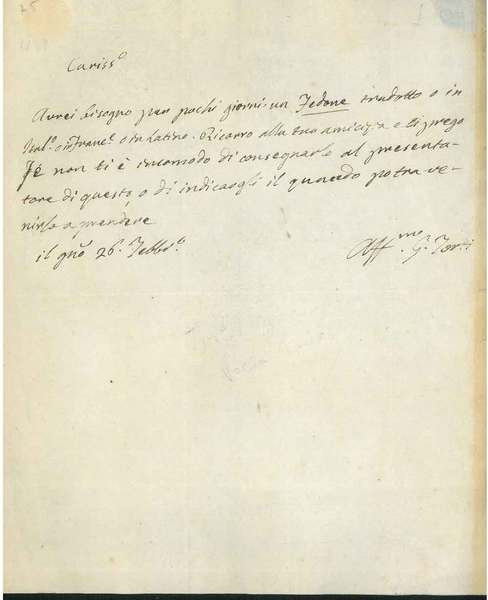 Cariss.o
Avrei bisogno per pochi giorni un Fedone tradotto o in
Ital.o o in Franc.e o in Latino. Ricorro alla tua amicizia e ti prego
Se non ti è incomodo di consegnarlo al presenta-
tore di questo, o di indicargli il quando potrà ve-
nirlo a prendere
il gno 26. Febbo.
Aff.mo G. Torti